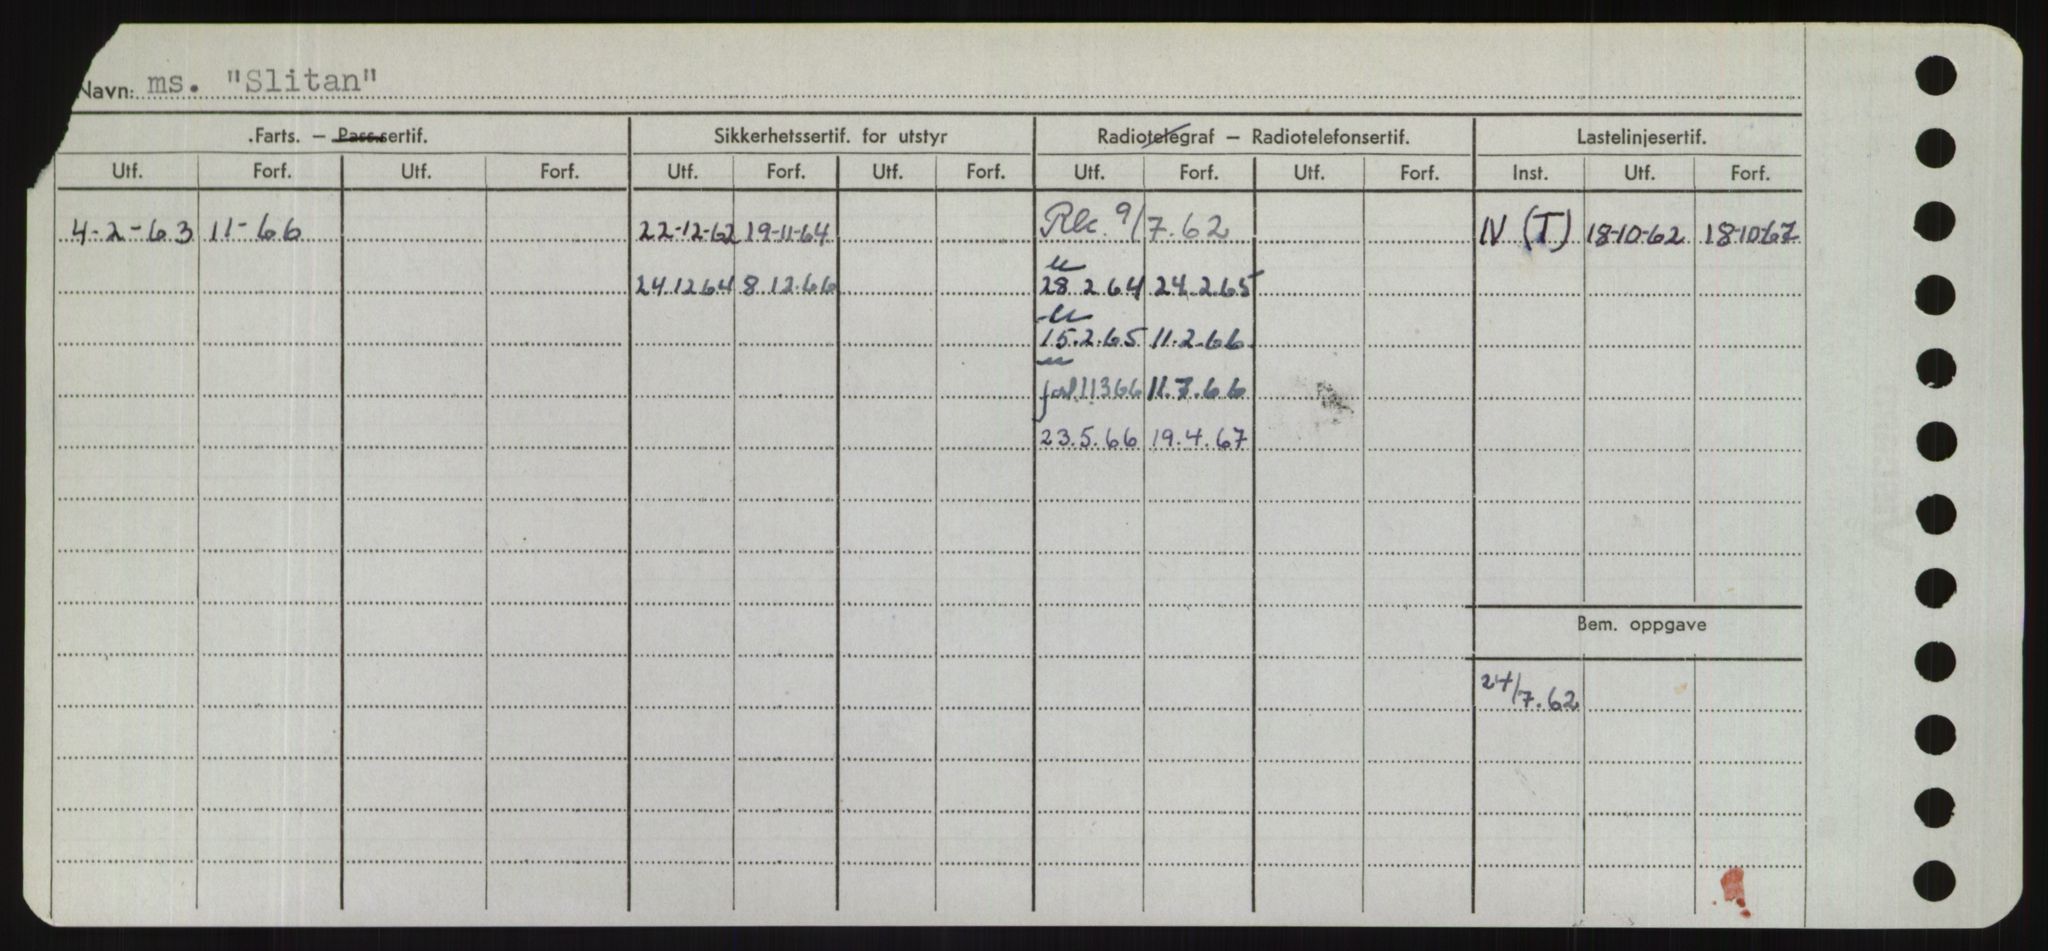 Navn: ms. "Slitan"
.Farts. — Pass.sertif. Sikkerhetssertif. for utstyr Radiotelegraf — Radiotelefonsertif. Lastelinjesertif.
Utf. Forf. Utf. Forf. Utf. Forf. Utf. Forf. Utf. Forf. Utf. Forf. Inst. Utf. Forf.
4-2-63 11-66 22-12-62 19-11-64 9/7.62 IV (T) 18-10-62 18-10-67
24 12 64 8 12.66 28 2 64 24.2.65
15.2.65 11.2.66
11366 11.7.66
23.5.66 19.4.67
Bem. oppgave
24/7.62